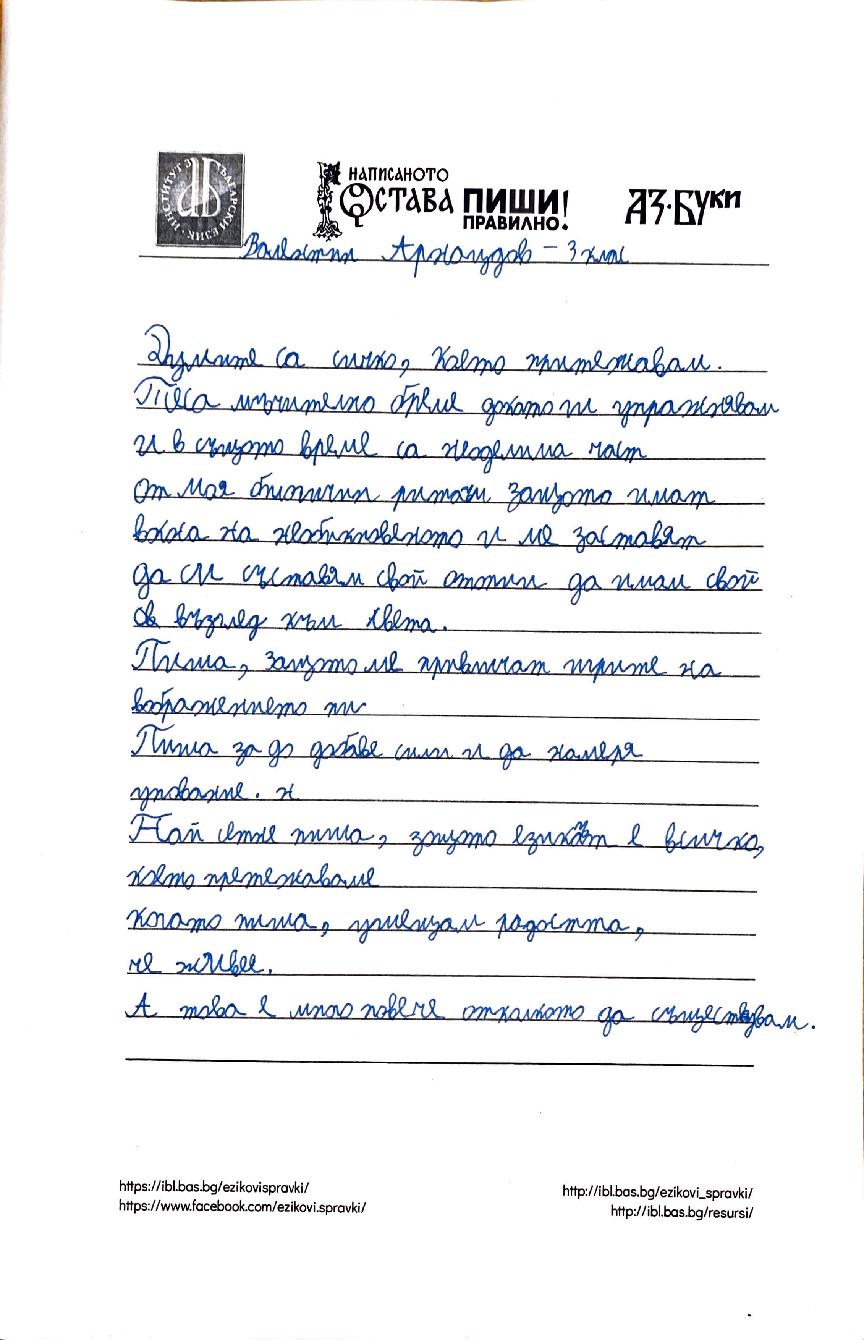 ИНСТИТУТ ЗА БЪЛГАРСКИ ЕЗИК
НАПИСАНОТО
ОСТАВА ПИШИ!
ПРАВИЛНО.
АЗ·БУКИ
Валентин Арнаудов – 3 клас
Думите са сичко, което притежавам.
Теса мъчително бреме докато ги упражнявам
и в същото време са неделима част
от моя битичии ритми защото имат
вкиса на необикновеното и ме заставят
да си съставям свой отпии да имам свой
ов възглед към света.
Пиша, защото ме привличат игрите на
вображението ми
Пиша за да добве сили и да намеря
упование. н
Най сетне пиша, защото езикът е всичко,
което претежаваме
когато пиша, усещам радостта,
че живее.
А това е много повече отколкото да съществувам.
https://ibl.bas.bg/ezikovispravki/
https://www.facebook.com/ezikovi.spravki/
http://ibl.bas.bg/ezikovi_spravki/
http://ibl.bas.bg/resursi/